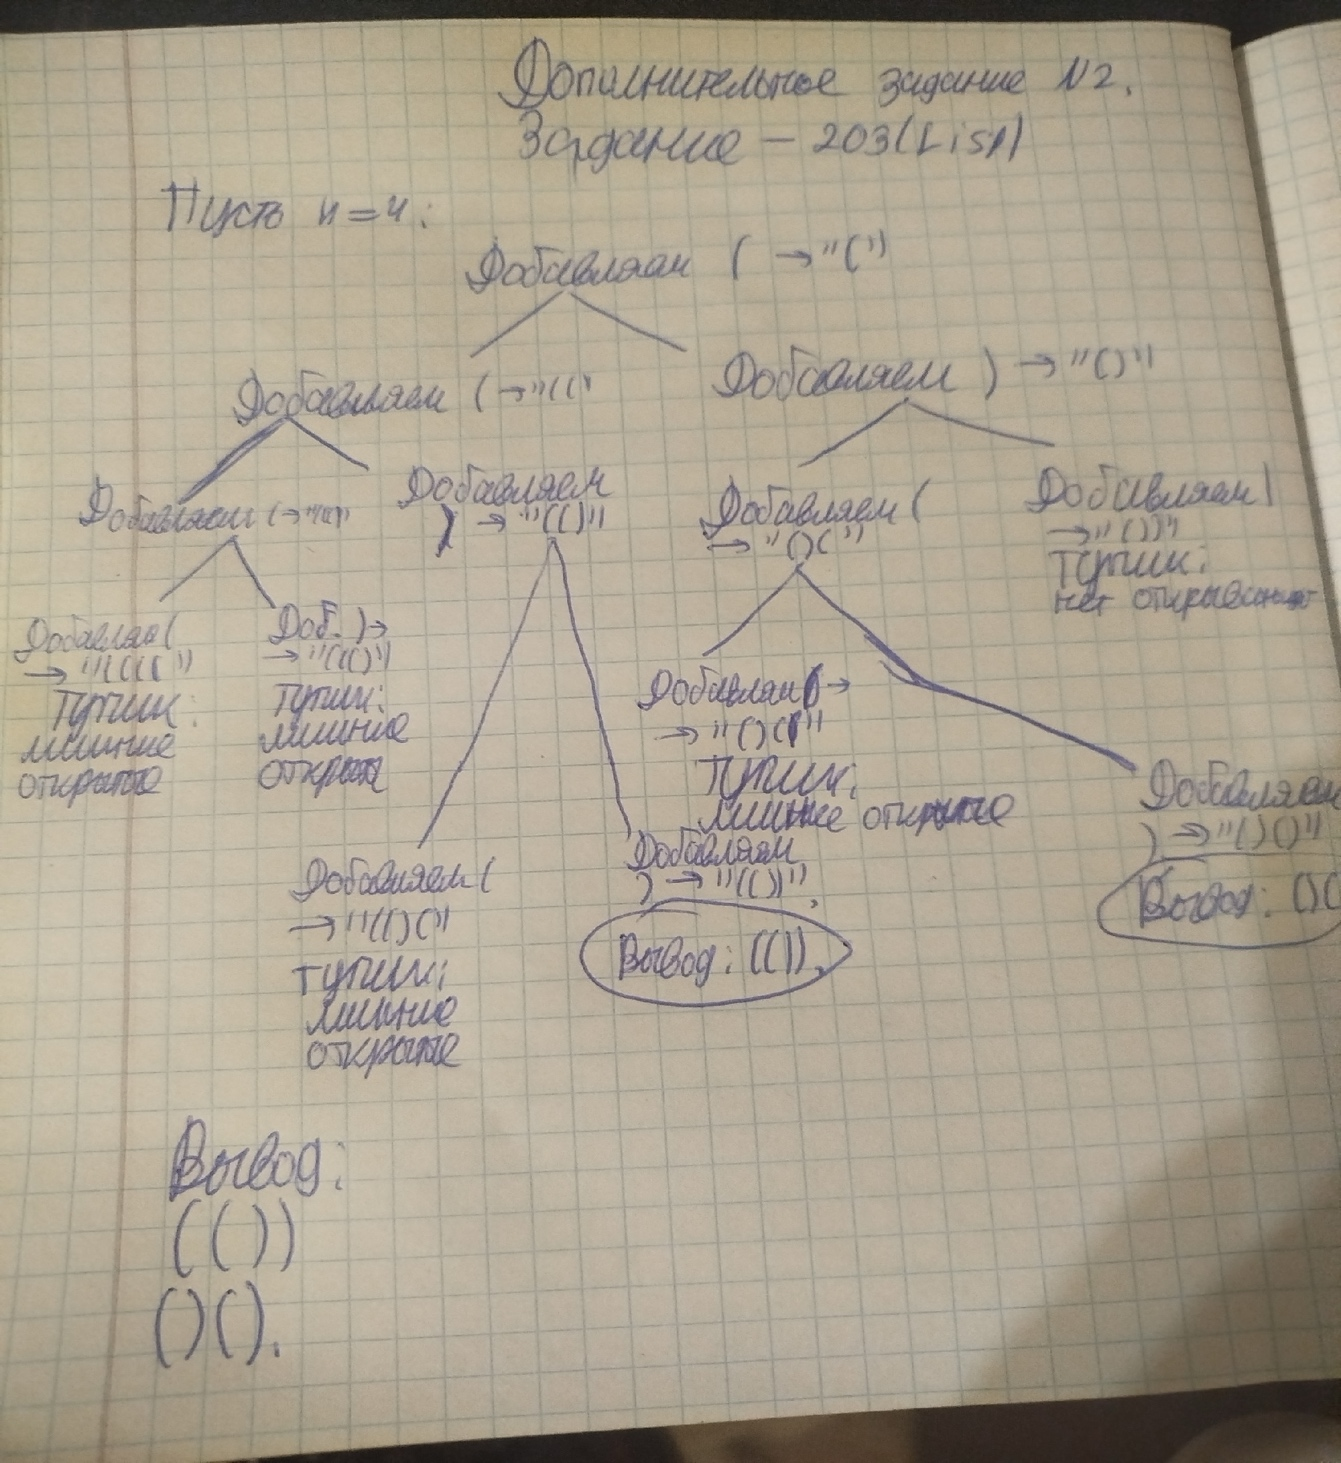 Дополнительное задание N2.
Задание – 203(List)
Пусть n=4:
Добавляем ( → "("
Добавляем ( → "(("
Добавляем ) → "()"
Добавляем ( → "((("
Добавляем
) → "(()"
Добавляем (
→ "()("
Добавляем )
→ "())"
Тупик:
нет
Добавляем (
→ "(((("
Тупик:
лишние
открытые
Доб. ) →
→ "((()"
Тупик:
лишние
открытые
Добавляем ( →
→ "()(("
Тупик:
лишние открытые
Добавляем
) → "()()"
Вывод: ()(
Добавляем (
→ "(()("
Тупик:
лишние
открытые
Добавляем
) → "(())".
Вывод: (()).
Вывод:
(())
()().